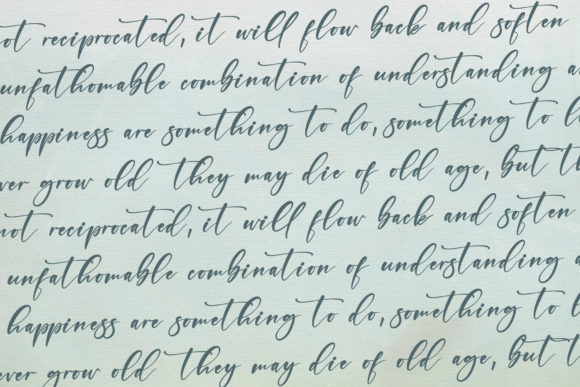 not reciprocated, it will flow back and soften
unfathomable combination of understanding
happiness are something to do, something to
ver grow old they may die of old age, but
not reciprocated, it will flow back and soften
unfathomable combination of understanding
happiness are something to do, something to
ever grow old they may die of old age, but